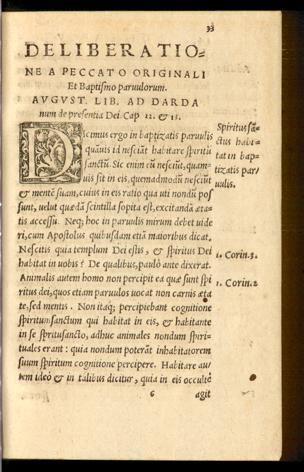 33
DE LIBERATIO-
NE A PECCATO ORIGINALI
Et Baptismo paruulorum.
AVGVST. LIB. AD DARDA
num de presentia Dei Cap 12. & 18.
Dicimus ergo in baptizatis paruulis
quāuis id nesciāt habitare spiritū
sanctū. Sic enim cū nesciūt, quam-
uis sit in eis, quemadmodū nesciūt
& mentē suam, cuius in eis ratio qua uti nondū pos
sunt, uelut quædā scintilla sopita est, excitandā æta-
tis accessu. Neq; hoc in paruulis mirum debet uide
ri, cum Apostolus quibusdam etiā maioribus dicat.
Nescitis quia templum Dei estis, & spiritus Dei
habitat in uobis? De qualibus, paulò ante dixerat.
Animalis autem homo non percipit ea quæ sunt spi
ritus dei, quos etiam paruulos uocat non carnis æta
te, sed mentis. Non itaq; percipiebant cognitione
spiritum sanctum qui habitat in eis, & habitante
in se spiritusancto, adhuc animales nondum spiri-
tuales erant: quia nondum poterāt inhabitatorem
suum spiritum cognitione percipere. Habitare au/
tem ideò & in talibus dicitur, quia in eis occultè
6 agit
Spiritus sā-
ctus habi-
tat in bap-
tizatis par/
uulis.
1. Corin.3.
1. Corin.2